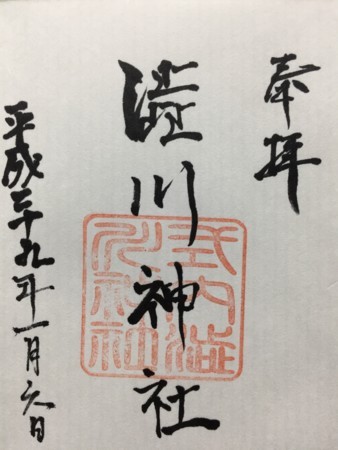 奉拝
澁川神社
式内澁川神社
平成二十九年一月六日